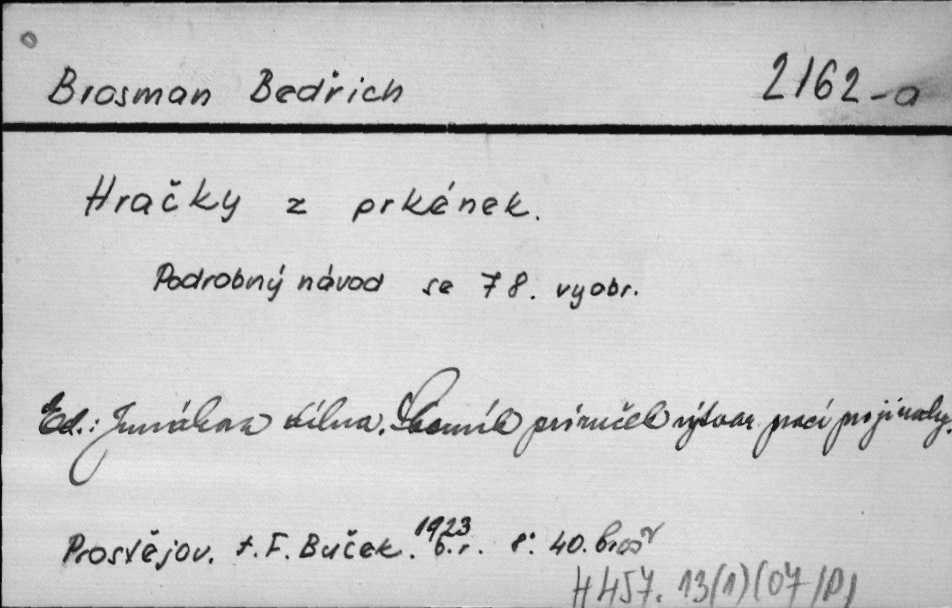 Brosman Bedřich 2162-a
Hračky z prkének.
Podrobný návod se 78. vyobr.
Ed.: Junákova dílna. Sborník příruček výtvar. prací pro
1923
Prostějov. t. F. Buček. b.r. 8°. 40. brož
H 457. 13(1)(07/P)